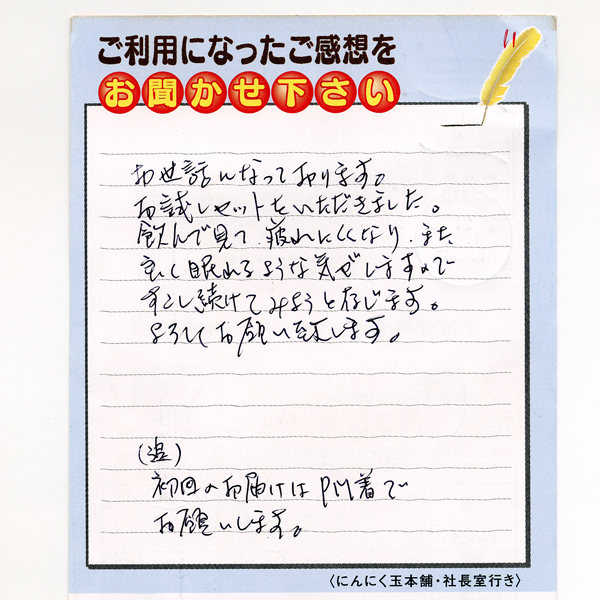 ご利用になったご感想を
お聞かせ下さい
お世話になっております。
お試しセットをいただきました。
飲んで見て、疲れにくくなり、また
良く眠れるような気がしますので
すこし続けてみようと存じます。
よろしくお願い致します。
(追)
初回のお届けはPM着で
お願いします。
〈にんにく玉本舗・社長室行き〉